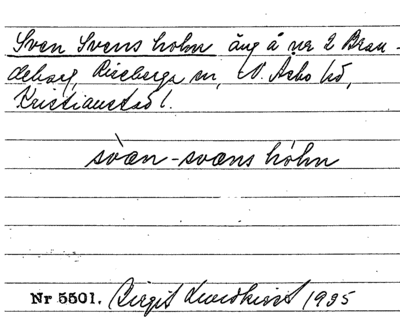 Sven Svens holm äng å nr 2 Bran-
deberg, Riseberga sn, N. Åsbo hd,
Kristianstad l.
svæn-svæns hòlm
Nr 5501. Birgit Lundkvist 1935